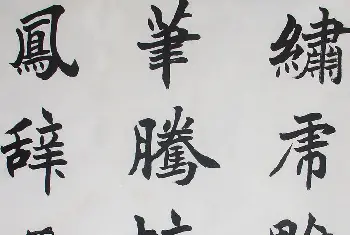 繡虎
筆騰
鳳辞